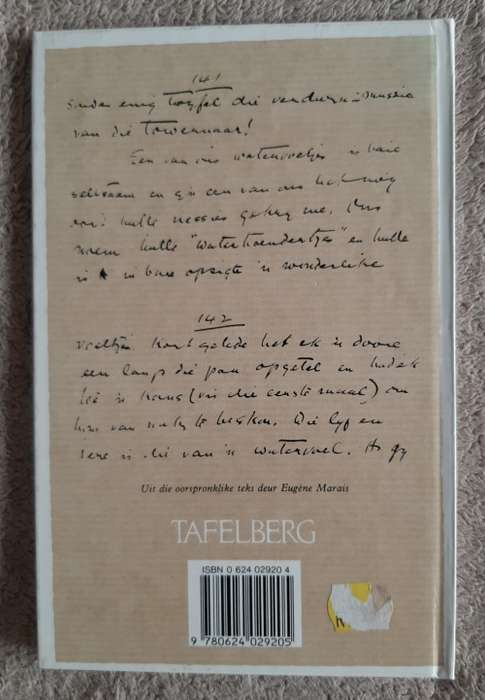 141
sonder enig twyfel die
van die towenaar!
Een van ons watervoeltjies is baie
seldsaam en een van ons het nog
ooit hulle nessies gekry nie. Ons
noem hulle "waterhoendertjies" en hulle
is in baie opsigte 'n wonderlike
142
voeltjie. Kort gelede het ek 'n dooie
een langs die pan opgetel en had ek
'n kans (vir die eerste maal) om
hom van naby te besken. Die lyf en
bene is die van 'n watervoel. As gy
Uit die oorspronklike teks deur Eugène Marais
TAFELBERG
ISBN 0 624 02920 4
9 780624 029205